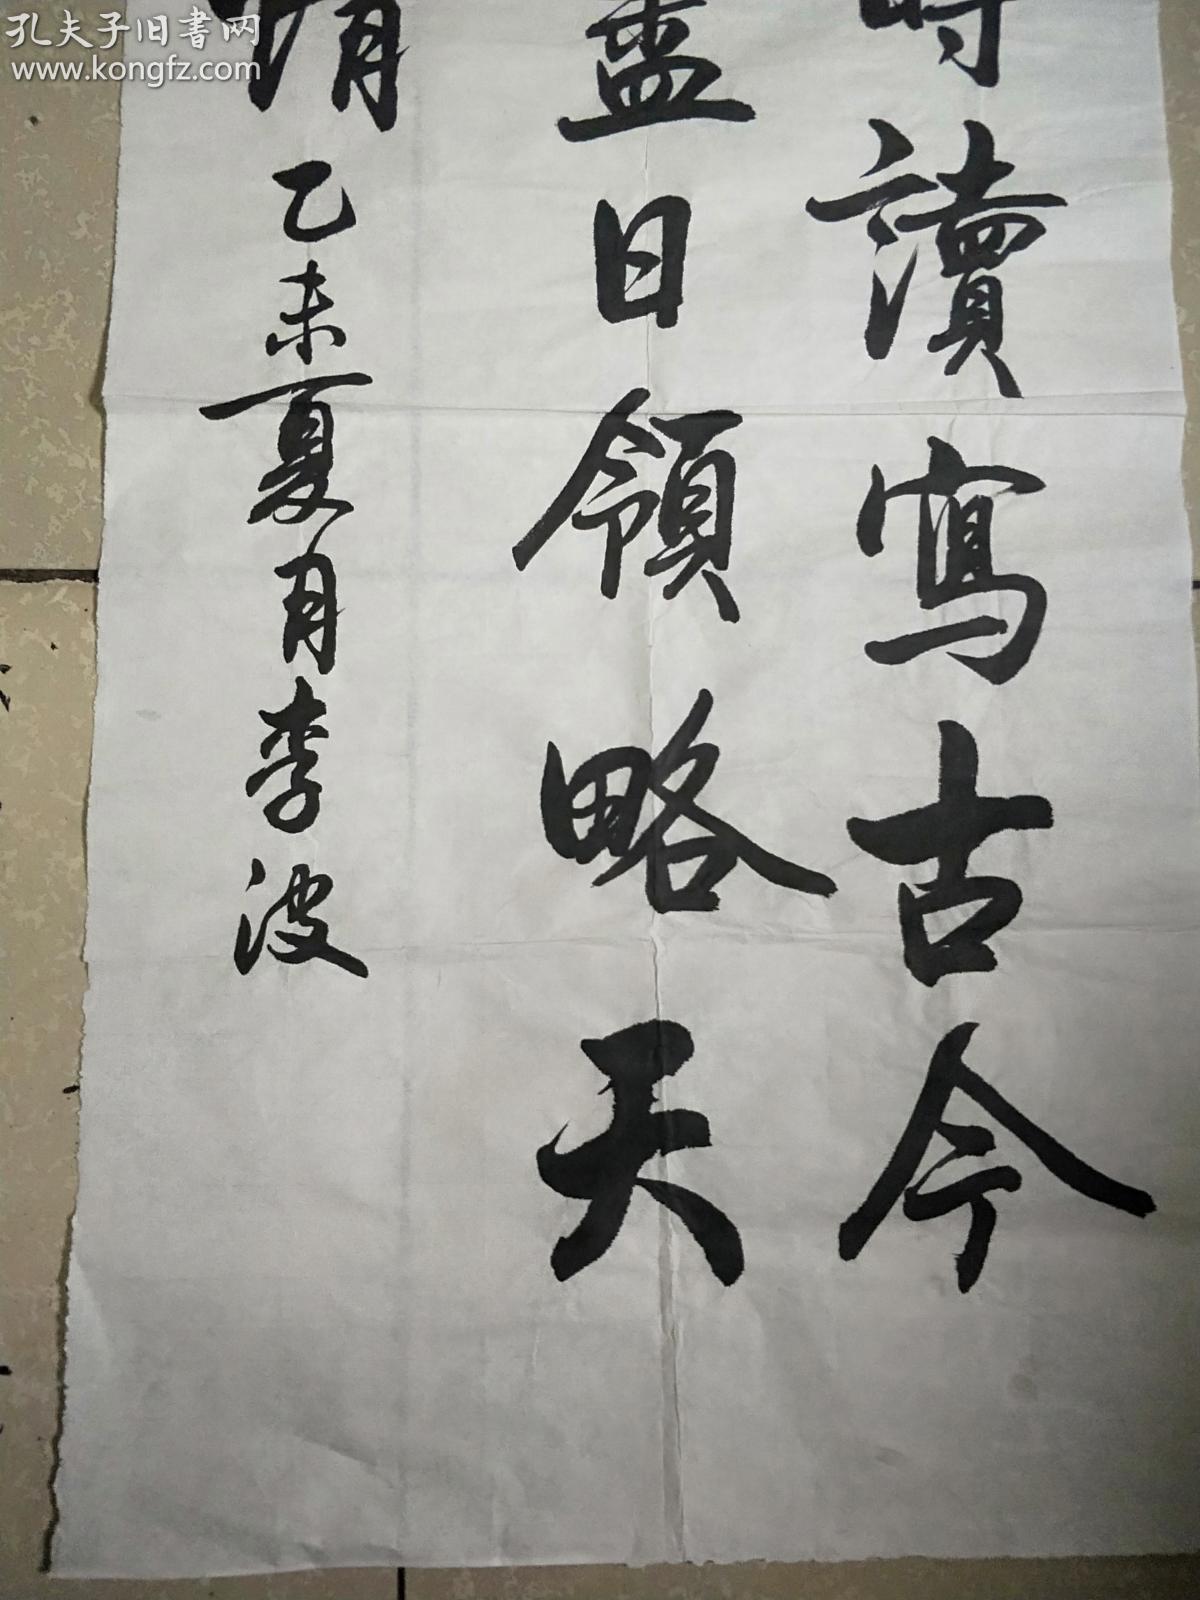 孔夫子旧書网
www.kongfz.com
時讀寫古今
盡日領略天
情
乙未夏月李波